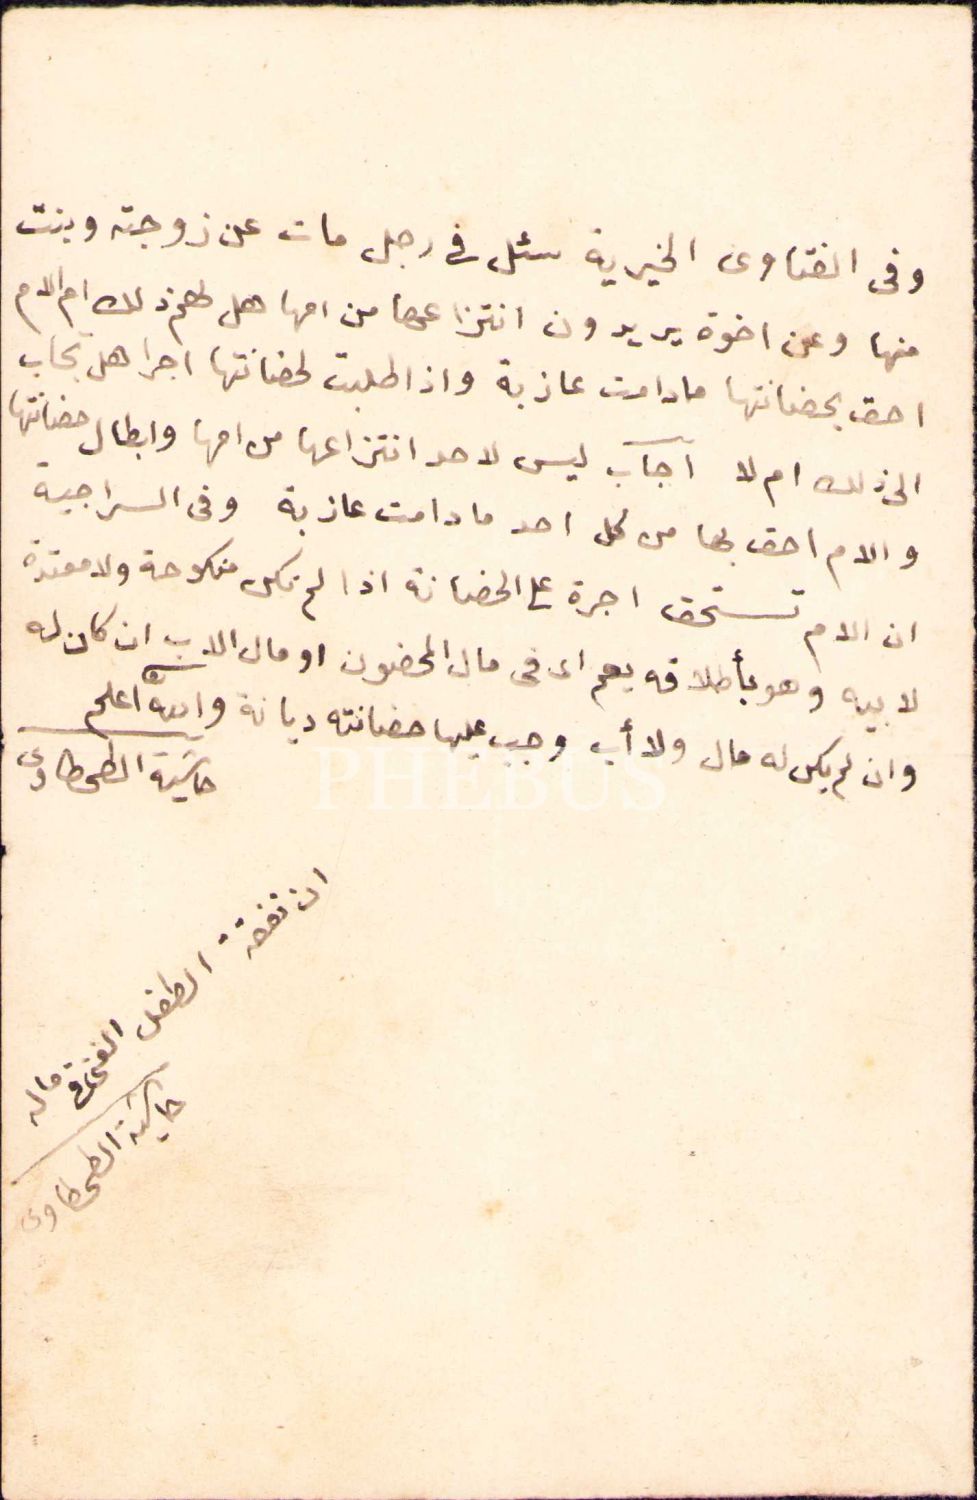 وفى الفتاوى الخيرية سئل فى رجل مات عن زوجته وبنت
منها وعن اخوة يريدون انتزاعها من امها هل لهم ذلك ام الام
احق بحضانتها مادامت عازبة واذا طلبت لحضانتها اجرا هل تجاب
الى ذلك ام لا اجاب ليس لاحد انتزاعها من امها وابطال حضانتها
والام احق بها من كل احد مادامت عازبة وفى السراجية
ان الام تستحق اجرة على الحضانة اذا لم تكن منكوحة ولا معتدة
لابيه وهو بأطلاقه يعم اى فى مال المحضون او مال الاب ان كان له
وان لم يكن له مال ولا أب وجب عليها حضانته ديانة والله اعلم
حاشية الطحطاوى
PHEBUS
ان نفقة الطفل الغنى فى ماله
حاشية الطحطاوى